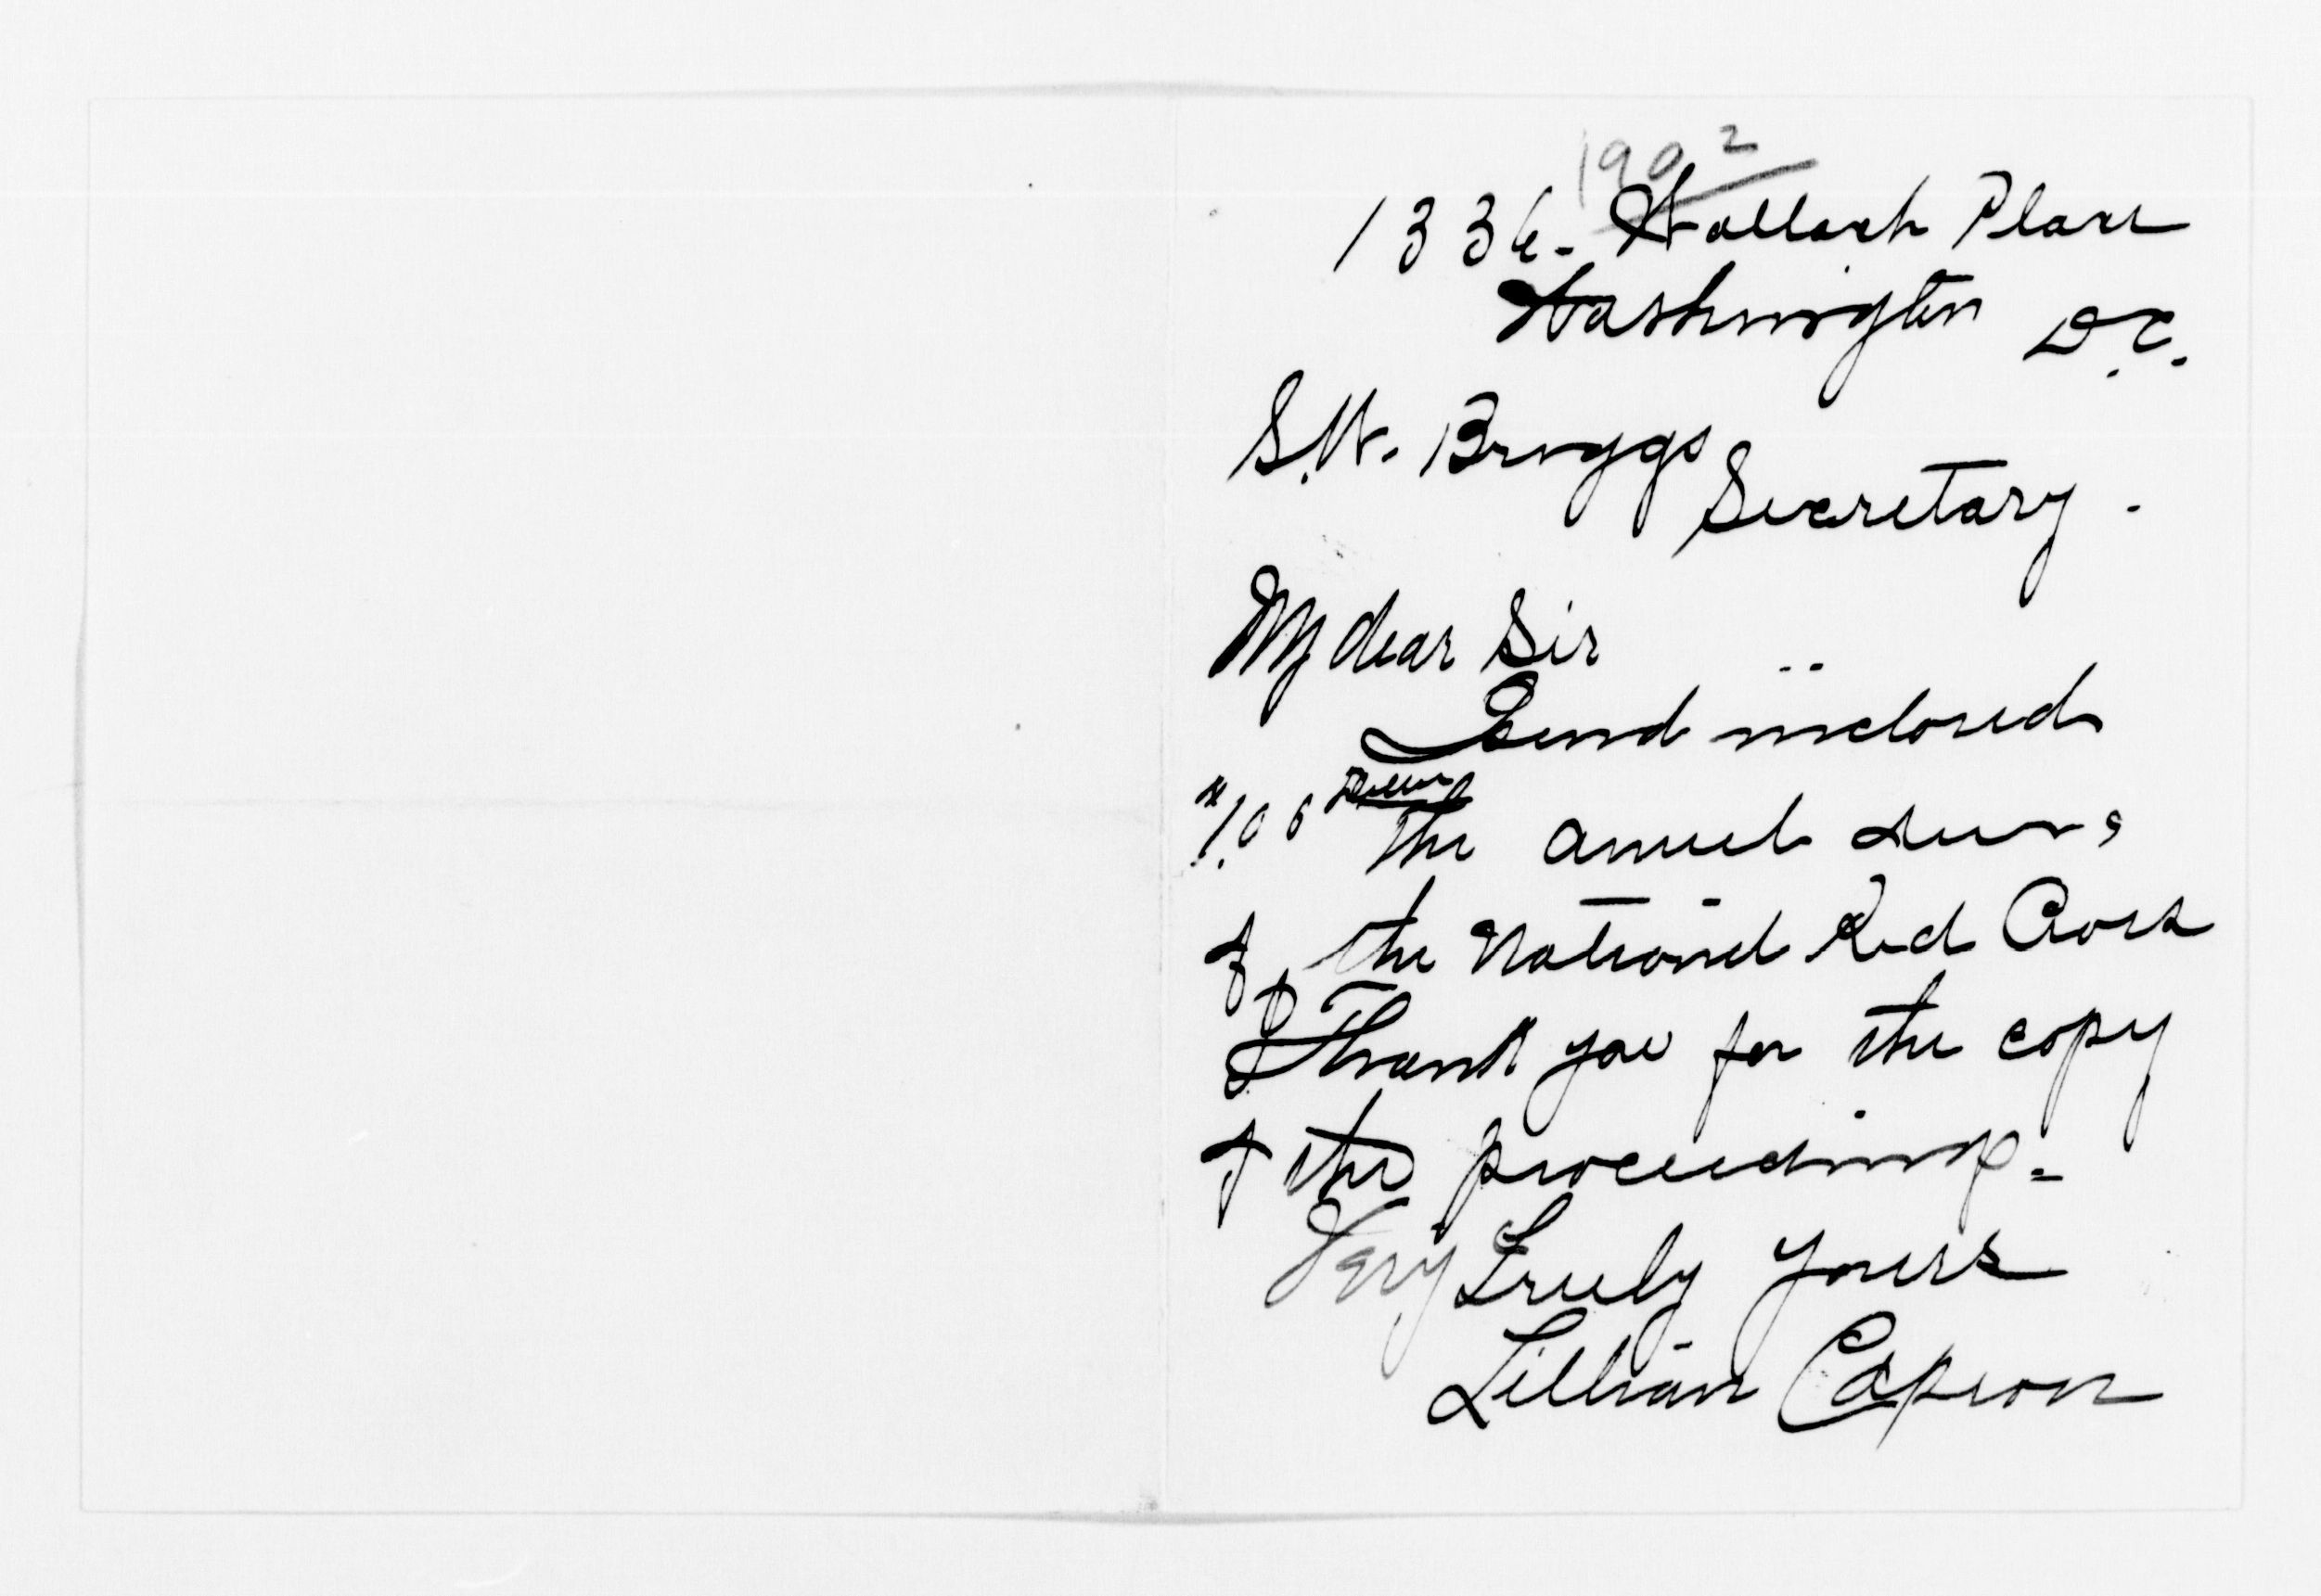 1902
1336. Wallach Place
Washington D.C.
S.W. Briggs
Secretary.
My dear Sir
I send inclosed
the anuel dues
of the National Red Cross
I Thank you for the copy
of the proceedings.
Very Truly yours
Lillian Capron